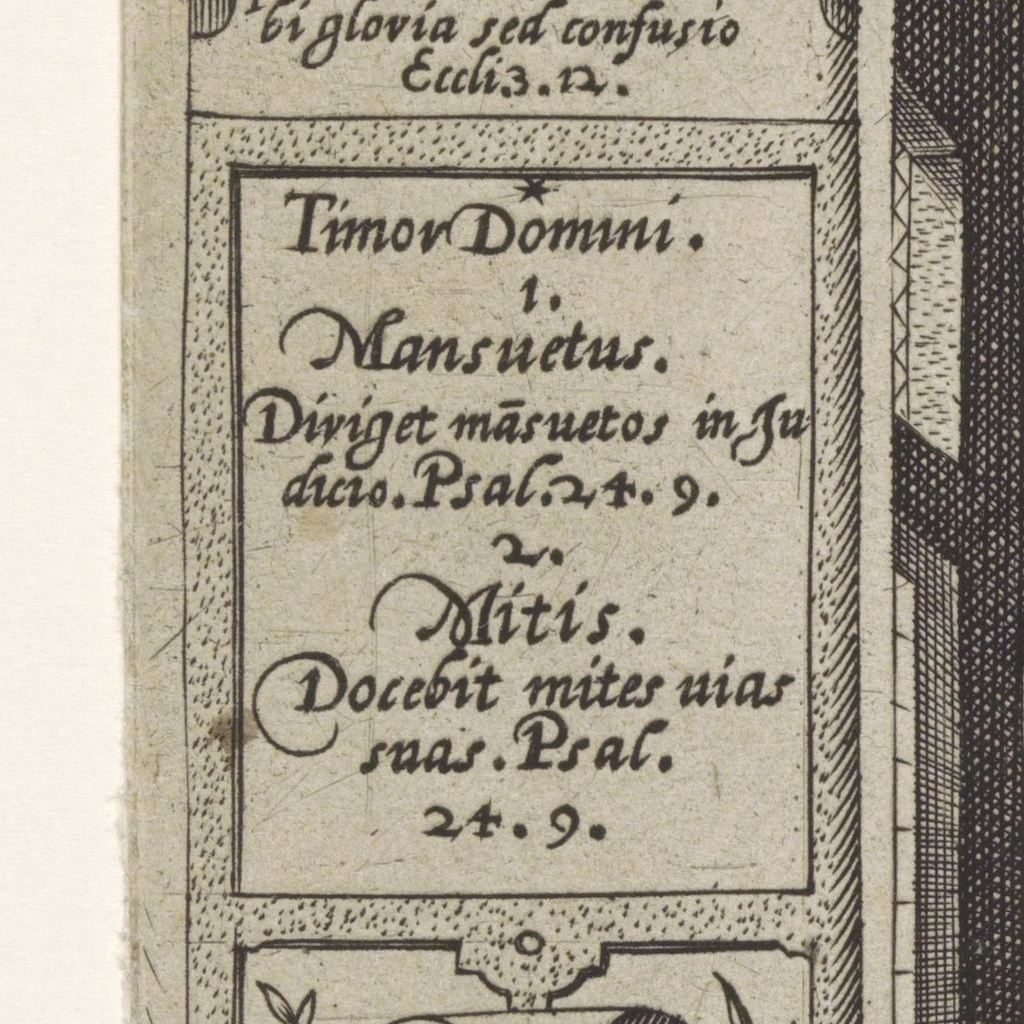 bi gloria sed confusio
Eccli.3.12.
Timor Domini.
1.
Mansuetus.
Diriget māsuetos in Ju
dicio. Psal. 24. 9.
2.
Mitis.
Docebit mites uias
suas. Psal.
24. 9.